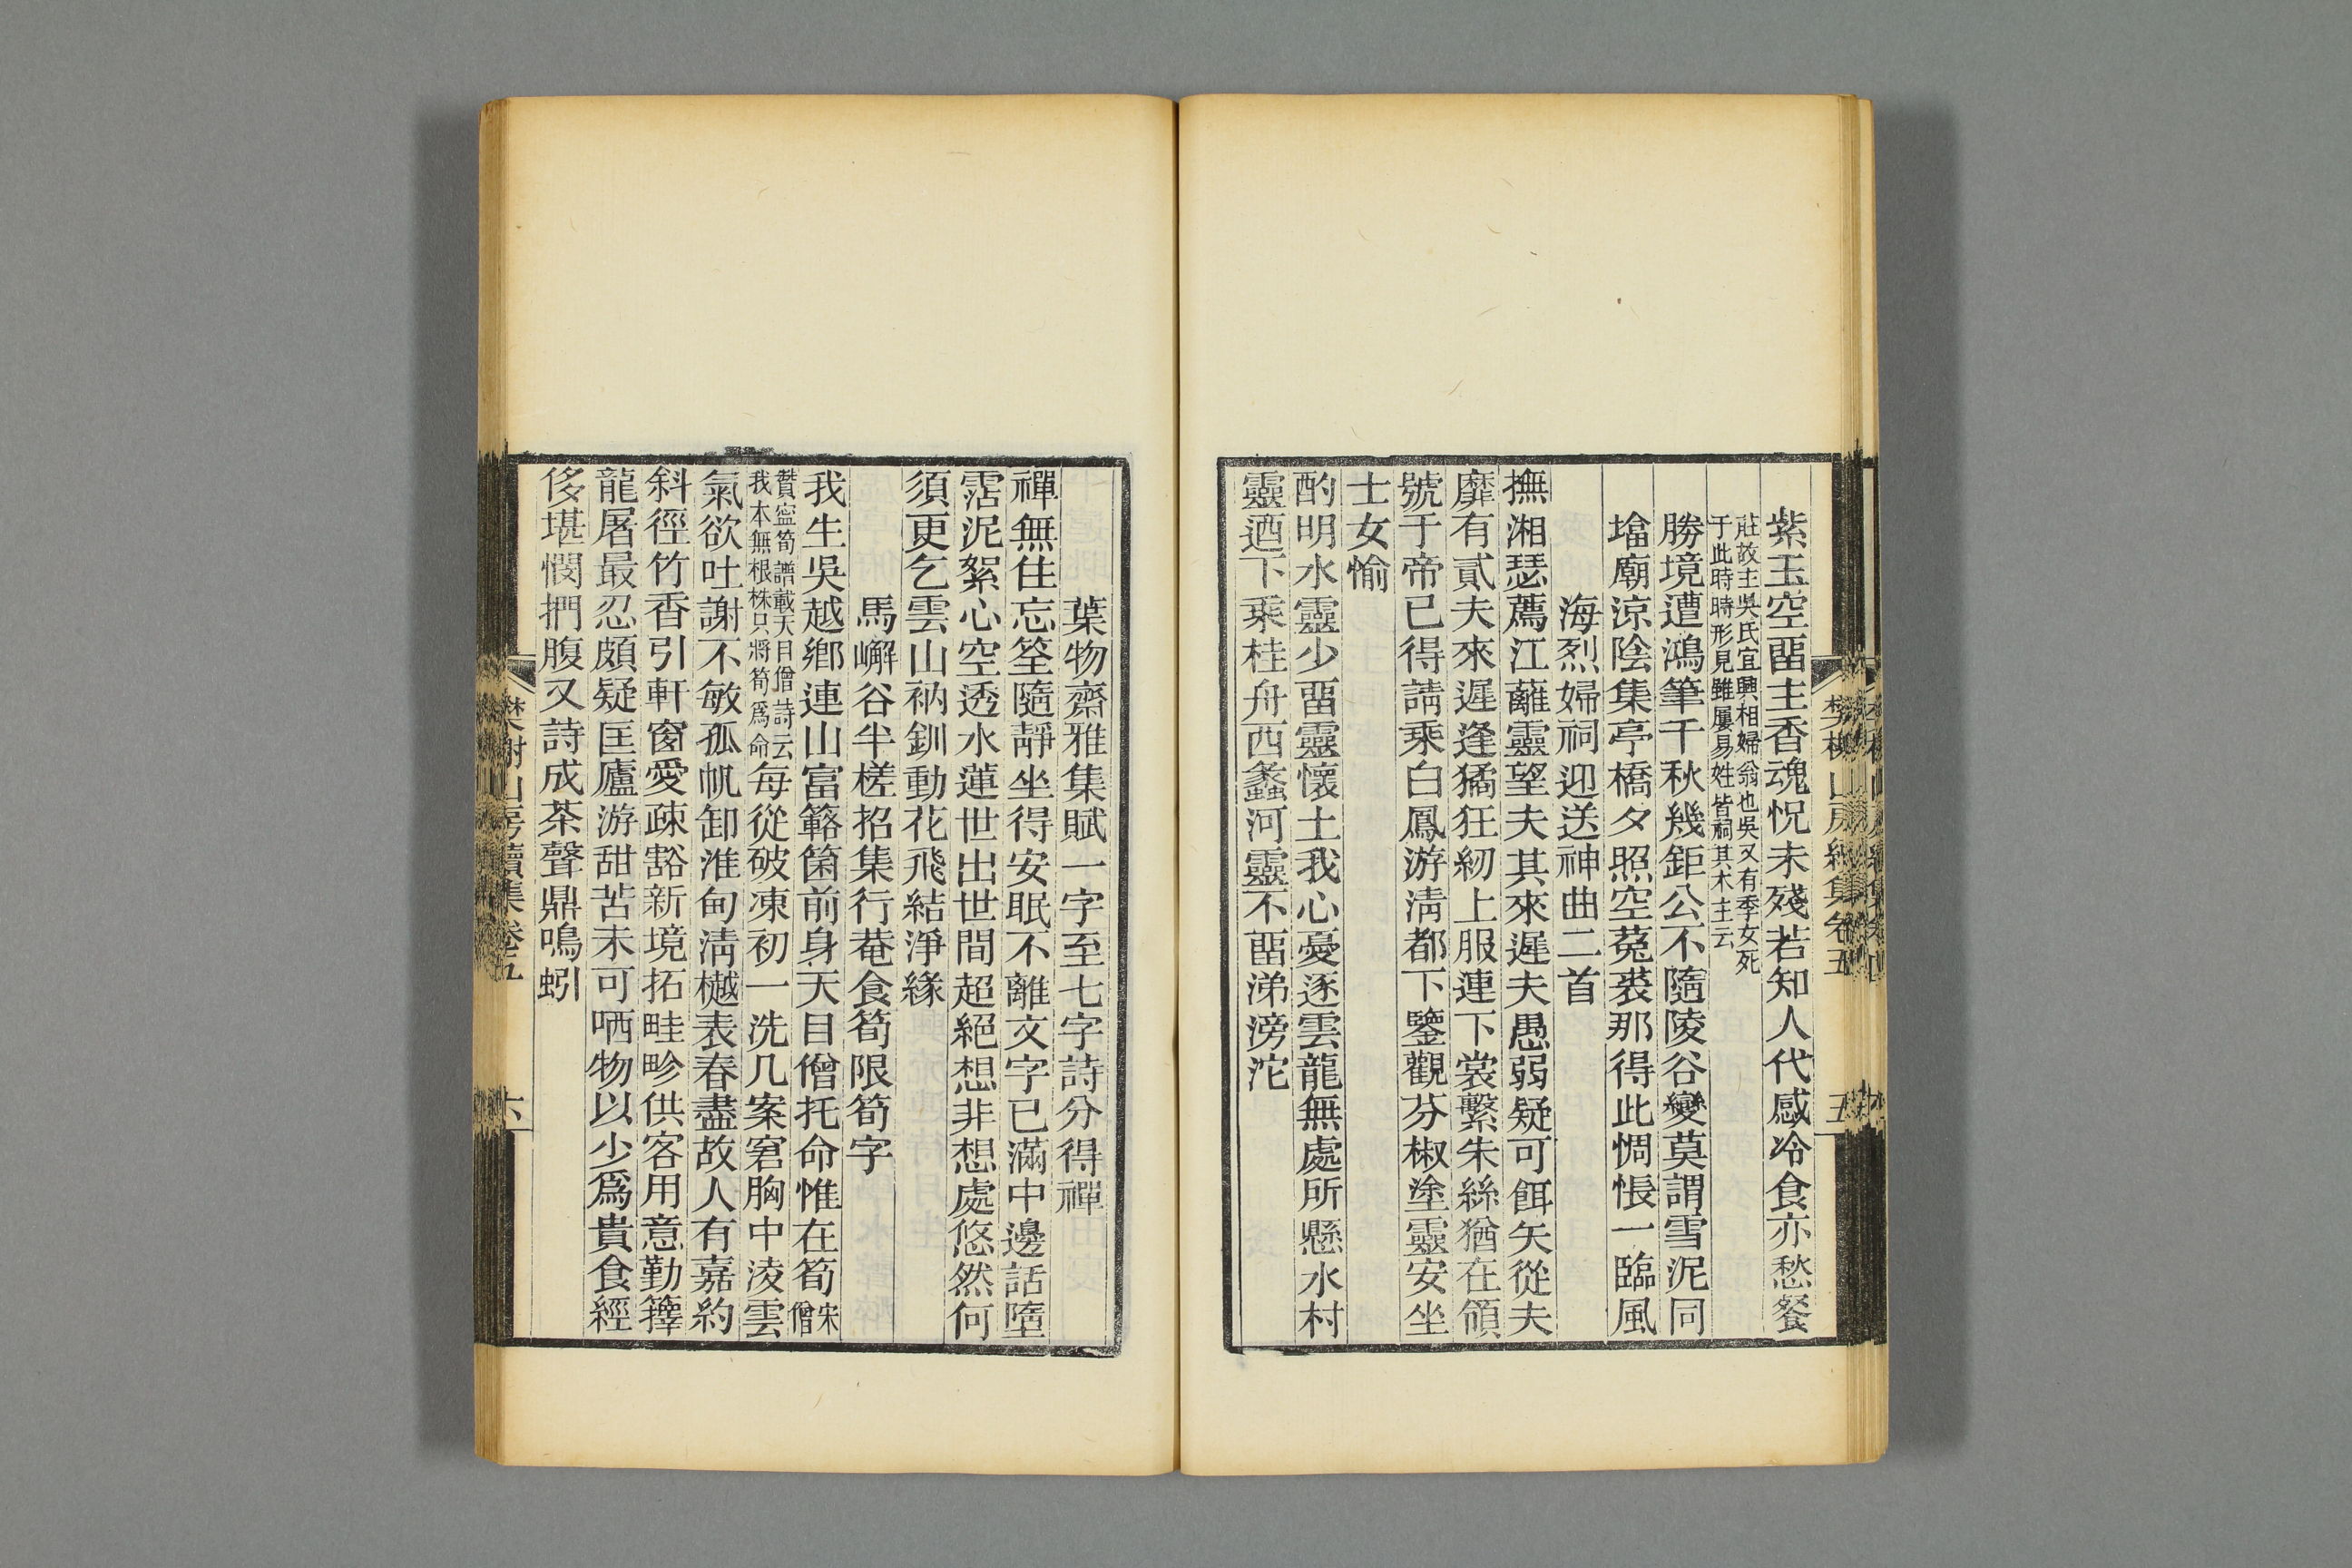 紫玉空畱主香魂怳未殘若知人代感冷食亦愁餐
莊故主吳氏宜興相婦翁也吳又有季女死
于此時時形見雖屢易姓皆祠其木主云
勝境遭鴻筆千秋幾鉅公不隨陵谷變莫謂雪泥同
壋廟涼陰集亭橋夕照空菟裘那得此惆悵一臨風
海烈婦祠迎送神曲二首
撫湘瑟薦江蘺靈望夫其來遲夫愚弱疑可餌矢從夫
靡有貳夫來遲逢猺狂紉上服連下裳繫朱絲猶在頷
號于帝已得請乘白鳳游淸都下鑒觀芬椒塗靈安坐
士女愉
酌明水靈少畱靈懷土我心憂逐雲龍無處所懸水村
靈迺下乘桂舟西蠡河靈不畱涕滂沱
樊榭山房續集卷五
五
葉物齋雅集賦一字至七字詩分得禪
禪無住忘筌隨靜坐得安眠不離文字已滿中邊話墮
霑泥絮心空透水蓮世出世間超絕想非想處悠然何
須更乞雲山衲釧動花飛結淨緣
馬嶰谷半槎招集行菴食筍限筍字
我生吳越鄉連山富簵箘前身天目僧托命惟在筍宋僧
贊寍筍譜載天目僧詩云
我本無根株只將筍爲命
每從破凍初一洗几案窘胸中淩雲
氣欲吐謝不敏孤帆卸淮甸淸樾表春盡故人有嘉約
斜徑竹香引軒窗愛疎豁新境拓畦畛供客用意勤籜
龍屠最忍頗疑匡廬游甜苦未可哂物以少爲貴食經
侈堪憫捫腹又詩成茶聲鼎鳴蚓
樊榭山房續集卷五
六